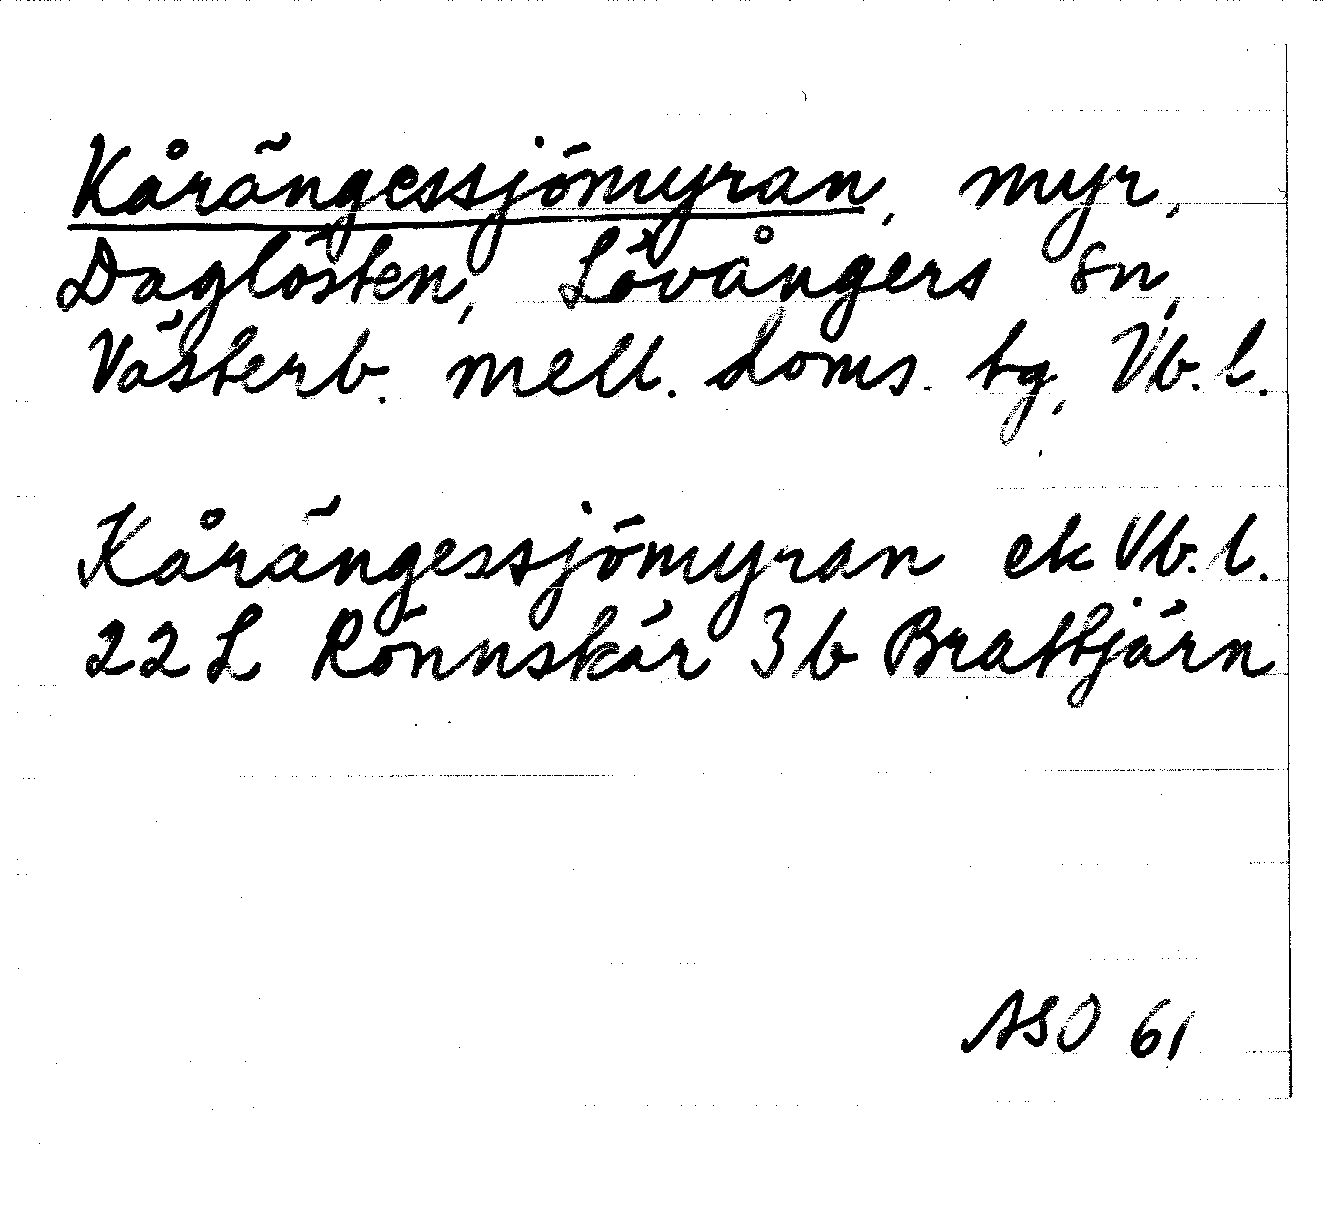 Kårängessjömyran, myr,
Daglösten, Lövångers sn,
Västerb. mell. doms. tg, Vb. l.
Kårängessjömyran ek Vb. l.
22 L Rönnskär 3 b Brattjärn
ASO 61